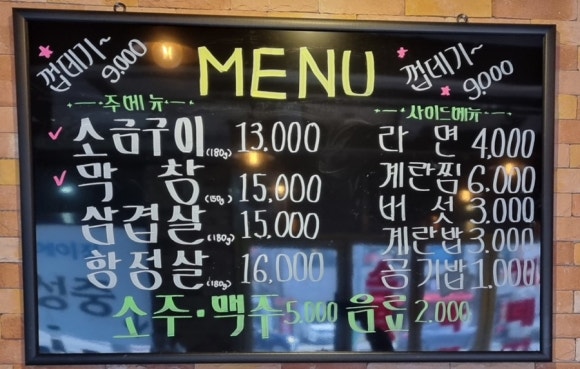 껍데기~ 9.000
MENU
껍데기~ 9.000
주메뉴
소금구이(180g) 13.000
막창(150g) 15,000
삼겹살(180g) 15.000
항정살(180g) 16,000
사이드메뉴
라면 4,000
계란찜 6.000
버섯 3.000
계란밥 3.000
공기밥 1.000
소주·맥주 5.000 음료 2.000